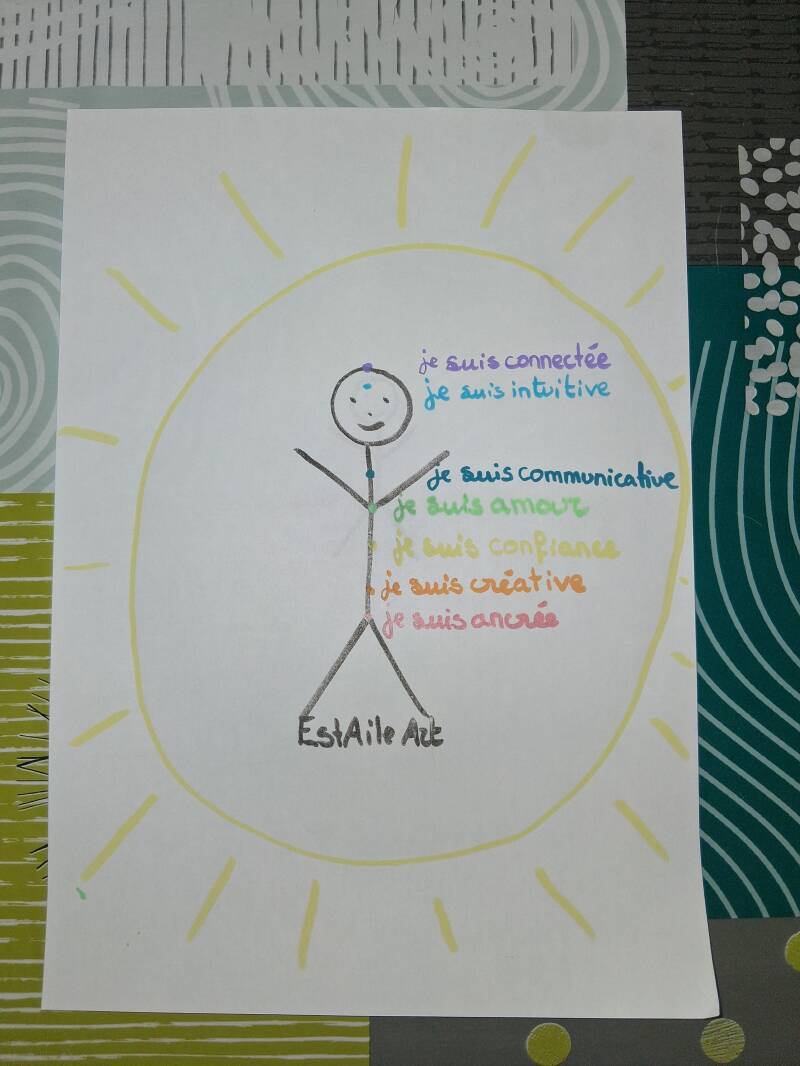 je suis connectée
je suis intuitive
je suis communicative
je suis amour
je suis confiance
je suis créative
je suis ancrée
EstAile Art